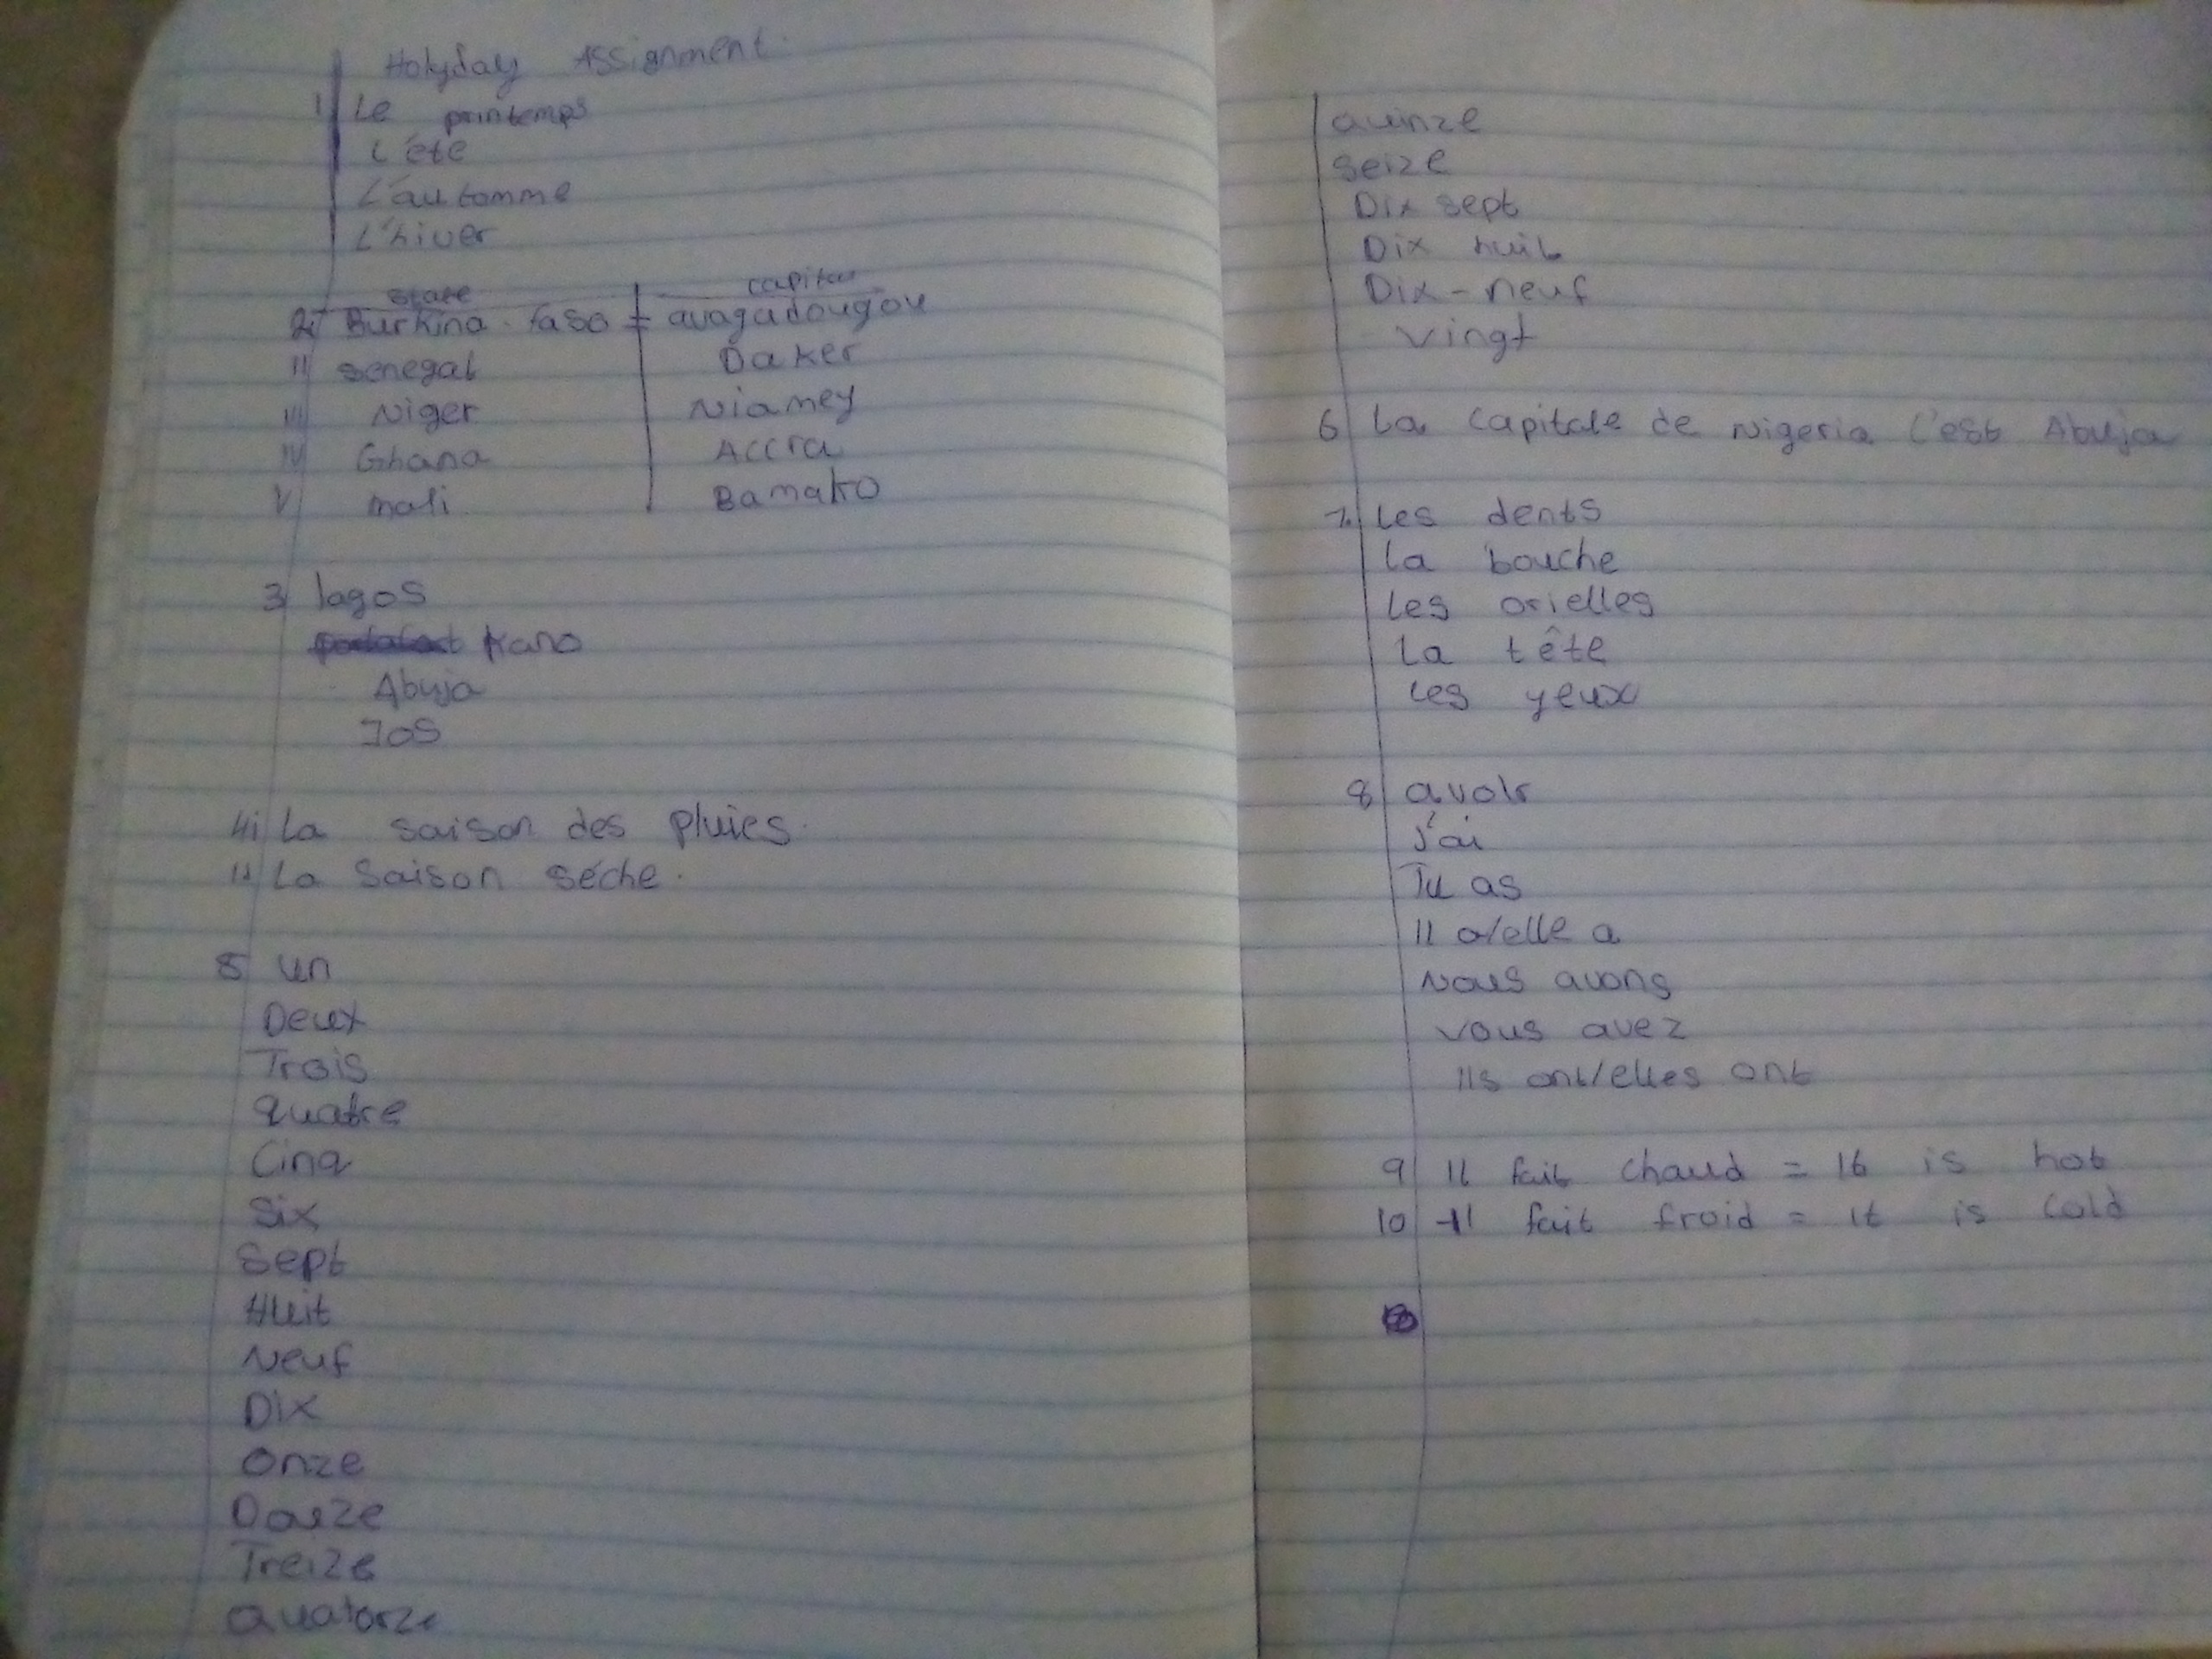 Holyday Assignment.
1 Le printemps
L'éte
L'automme
L'hiver
state capital
2i Burkina-faso = ouagadougou
ii senegal Daker
iii Niger Niamey
iv Ghana Accra
v mali Bamako
3 lagos
kano
Abuja
Jos
4i La saison des pluies.
ii La Saison séche.
5 un
Deux
Trois
quatre
Cinq
Six
Sept
Huit
Neuf
Dix
Onze
Douze
Treize
Quatorze
quinze
seize
Dix sept
Dix huit
Dix-neuf
Vingt
6 La capitale de Nigeria c'est Abuja
7. Les dents
La bouche
Les orielles
La tête
Les yeux
8 avoir
J'ai
Tu as
Il a/elle a
Nous avons
Vous avez
Ils ont/elles ont
9 Il fait chaud = It is hot
10 Il fait froid = it is cold